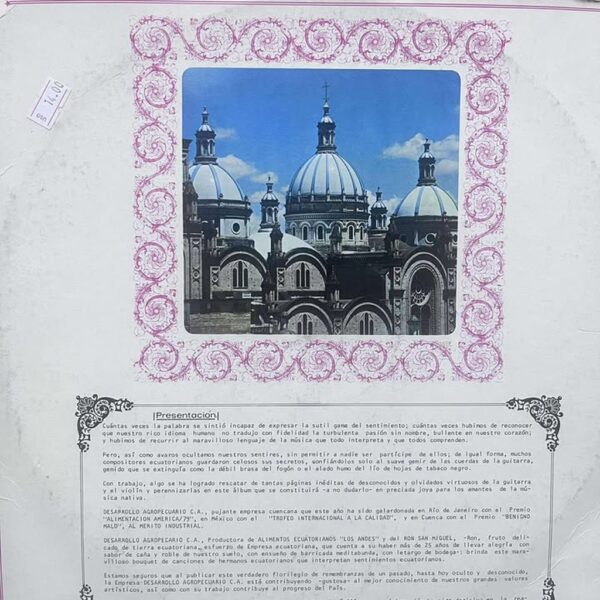 14.00
|Presentación|
Cuántas veces la palabra se sintió incapaz de expresar la sutil gama del sentimiento; cuántas veces hubimos de reconocer
que nuestro rico idioma humano no tradujo con fidelidad la turbulenta pasión sin nombre, bullente en nuestro corazón;
y hubimos de recurrir al maravilloso lenguaje de la música que todo interpreta y que todos comprenden.
Pero, así como avaros ocultamos nuestros sentires, sin permitir a nadie ser partícipe de ellos; de igual forma, muchos
compositores ecuatorianos guardaron celosos sus secretos, confiándolos solo al suave gemir de las cuerdas de la guitarra,
gemido que se extinguía como la débil brasa del fogón o el alado humo del lío de hojas de tabaco negro.
Con trabajo, algo se ha logrado rescatar de tantas páginas inéditas de desconocidos y olvidados virtuosos de la guitarra
y el violín y perennizarlas en este álbum que se constituirá -a no dudarlo- en preciada joya para los amantes de la mú-
sica nativa.
DESARROLLO AGROPECUARIO C.A., pujante empresa cuencana que este año ha sido galardonada en Río de Janeiro con el Premio
"ALIMENTACION AMERICA/79", en México con el "TROFEO INTERNACIONAL A LA CALIDAD", y en Cuenca con el Premio "BENIGNO
MALO", AL MERITO INDUSTRIAL.
DESARROLLO AGROPECUARIO C.A., Productora de ALIMENTOS ECUATORIANOS "LOS ANDES" y del RON SAN MIGUEL, -Ron, fruto deli-
cado de tierra ecuatoriana, esfuerzo de Empresa ecuatoriana, que cuenta a su haber más de 25 años de llevar alegría con
sabor de caña y roble de nuestro suelo, con ensueño de barricada meditabunda, con letargo de bodega-; brinda este mara-
villoso bouquet de canciones de hermanos ecuatorianos que interpretan sentimientos ecuatorianos.
Estamos seguros que al publicar este verdadero florilegio de remembranzas de un pasado, hasta hoy oculto y desconocido,
la Empresa DESARROLLO AGROPECUARIO C.A. está contribuyendo -gustosa- al mejor conocimiento de nuestros grandes valores
artísticos, así como con su trabajo contribuye al progreso del País.